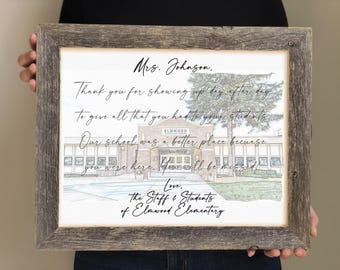 Mrs. Johnson,
Thank you for showing up day after day
to give all that you had to your students.
Our school was a better place becuase
ELMWOOD
you were here. You will be missed.
Love,
the Staff & Students
of Elmwood Elementary